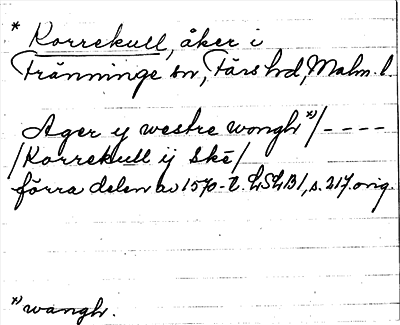 * Korrekull, åker i
Tränninge sn, Färs hd, Malm. l.
Ager y westre wongh *)/ - - - -
/Korrekull ij Skē/
förra delen av 1570-t. LSLB1, s. 217 orig.
*) wangh.